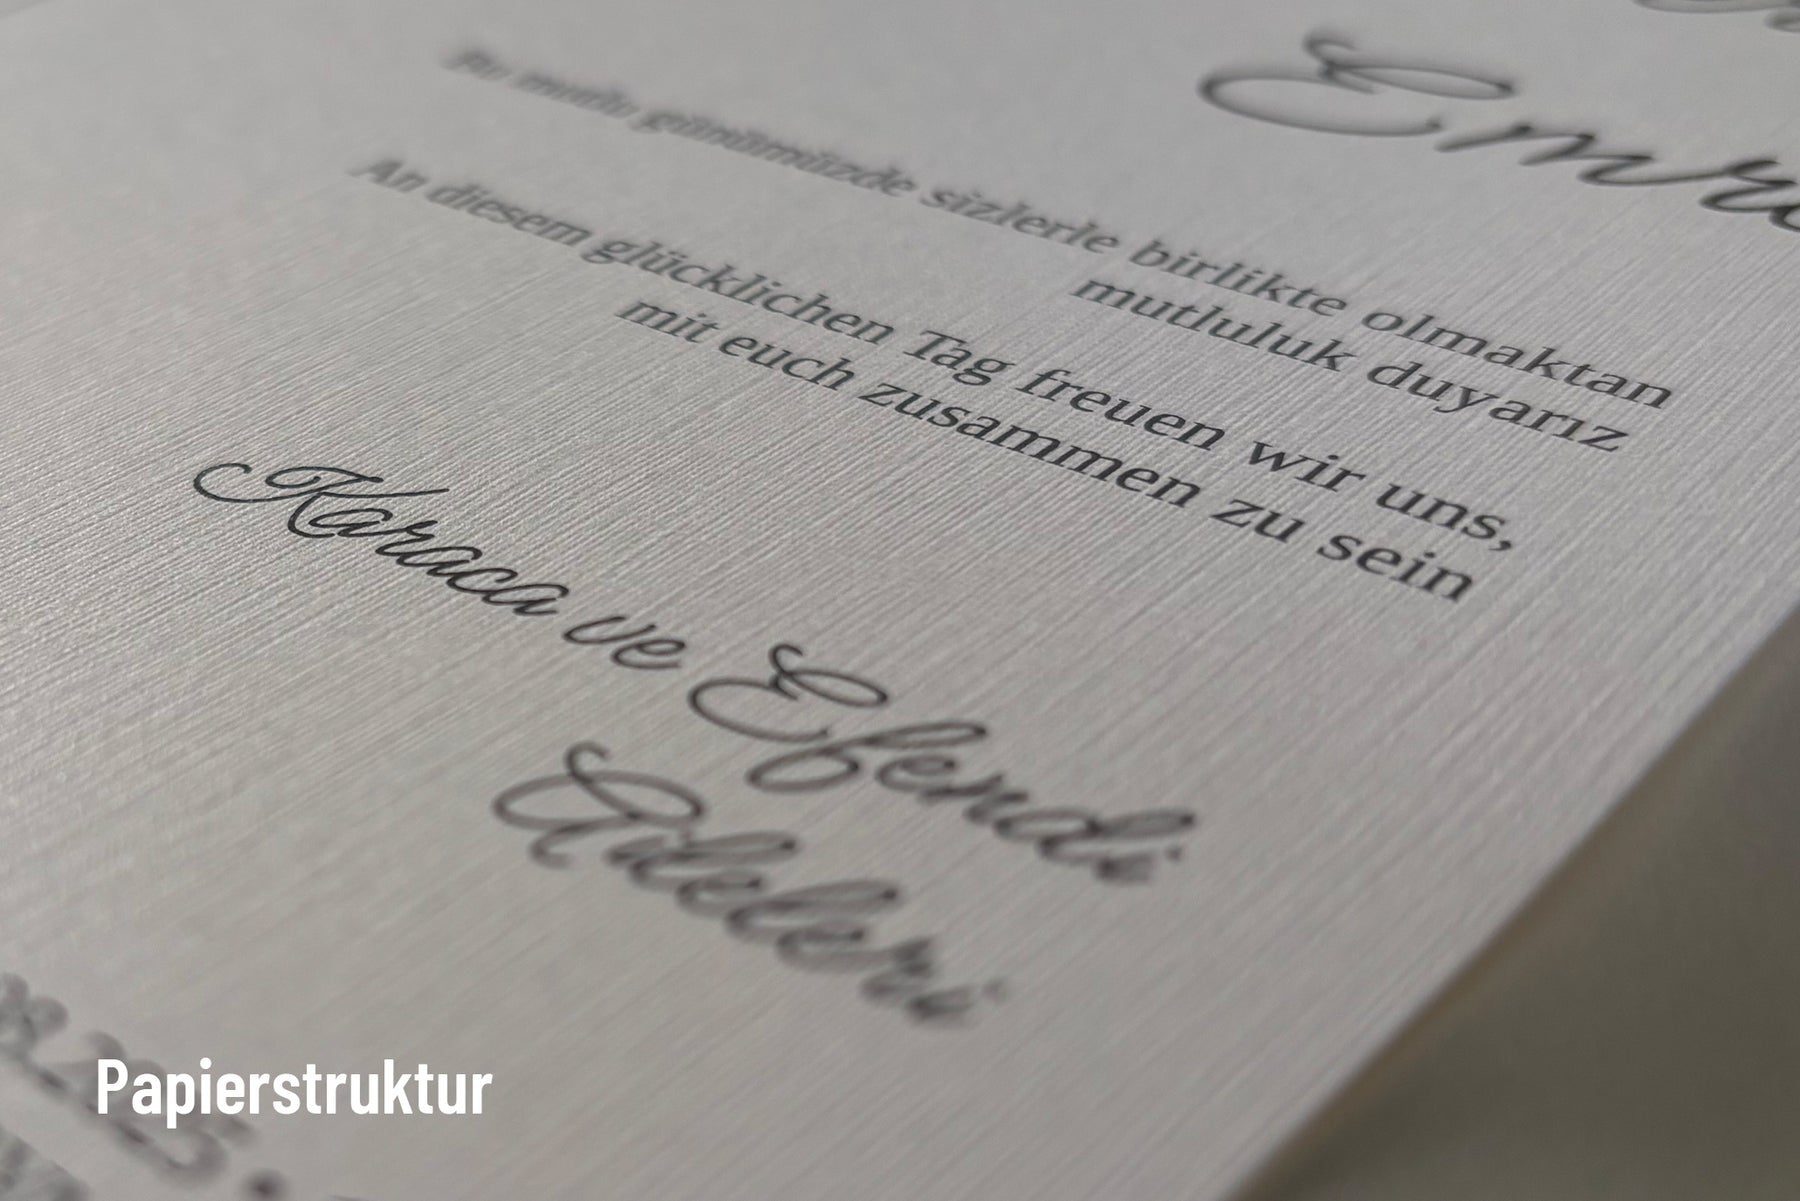 Emr
Bu mutlu günümüzde sizlerle birlikte olmaktan
mutluluk duyarız
An diesem glücklichen Tag freuen wir uns,
mit euch zusammen zu sein
Karaca ve Efendi
Aileleri
Papierstruktur